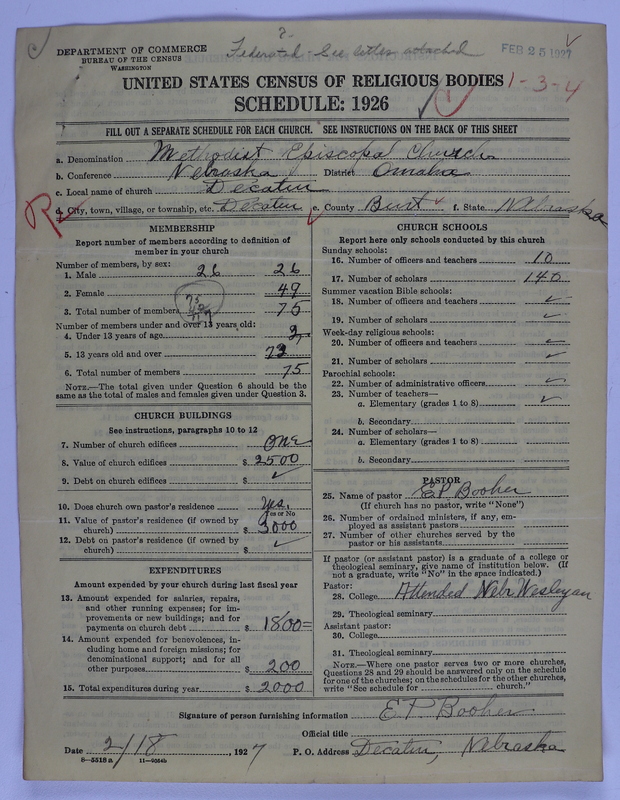 DEPARTMENT OF COMMERCE
BUREAU OF THE CENSUS
WASHINGTON
?
Federated - See letter attached
FEB 25 1927
UNITED STATES CENSUS OF RELIGIOUS BODIES
1-3-4
SCHEDULE: 1926
1
FILL OUT A SEPARATE SCHEDULE FOR EACH CHURCH. SEE INSTRUCTIONS ON THE BACK OF THIS SHEET
a. Denomination Methodist Episcopal Church
b. Conference Nebraska District Omaha
c. Local name of church Decatur
R d. City, town, village, or township, etc. Decatur e. County Burt f. State Nebraska
MEMBERSHIP
Report number of members according to definition of
member in your church
Number of members, by sex:
1. Male 26 26
2. Female 49
3. Total number of members 75
Number of members under and over 13 years old:
4. Under 13 years of age 2
5. 13 years old and over 73
6. Total number of members 75
NOTE.—The total given under Question 6 should be the
same as the total of males and females given under Question 3.
CHURCH BUILDINGS
See instructions, paragraphs 10 to 12
7. Number of church edifices one
8. Value of church edifices $ 2500
9. Debt on church edifices $ ✓
10. Does church own pastor's residence Yes.
Yes or No
11. Value of pastor's residence (if owned by
church) $ 3000
12. Debt on pastor's residence (if owned by
church) $ ✓
EXPENDITURES
Amount expended by your church during last fiscal year
13. Amount expended for salaries, repairs,
and other running expenses; for im-
provements or new buildings; and for
payments on church debt $ 1800=
14. Amount expended for benevolences, in-
cluding home and foreign missions; for
denominational support; and for all
other purposes $ 200
15. Total expenditures during year $ 2000
CHURCH SCHOOLS
Report here only schools conducted by this church
Sunday schools:
16. Number of officers and teachers 10
17. Number of scholars 140
Summer vacation Bible schools:
18. Number of officers and teachers ✓
19. Number of scholars ✓
Week-day religious schools:
20. Number of officers and teachers ✓
21. Number of scholars ✓
Parochial schools:
22. Number of administrative officers ✓
23. Number of teachers—
a. Elementary (grades 1 to 8) ✓
b. Secondary
24. Number of scholars—
a. Elementary (grades 1 to 8)
b. Secondary
PASTOR
25. Name of pastor E P Booher
(If church has no pastor, write "None")
26. Number of ordained ministers, if any, em-
ployed as assistant pastors
27. Number of other churches served by the
pastor or his assistants
If pastor (or assistant pastor) is a graduate of a college or
theological seminary, give name of institution below. (If
not a graduate, write "No" in the space indicated.)
Pastor:
28. College Attended Nebr Wesleyan
29. Theological seminary
Assistant pastor:
30. College
31. Theological seminary
NOTE.—Where one pastor serves two or more churches,
Questions 28 and 29 should be answered only on the schedule
for one of the churches; on the schedules for the other churches,
write "See schedule for church."
Signature of person furnishing information E. P. Booher
Official title
Date 2/18, 1927 P. O. Address Decatur, Nebraska
8—5518 a 11—9264b